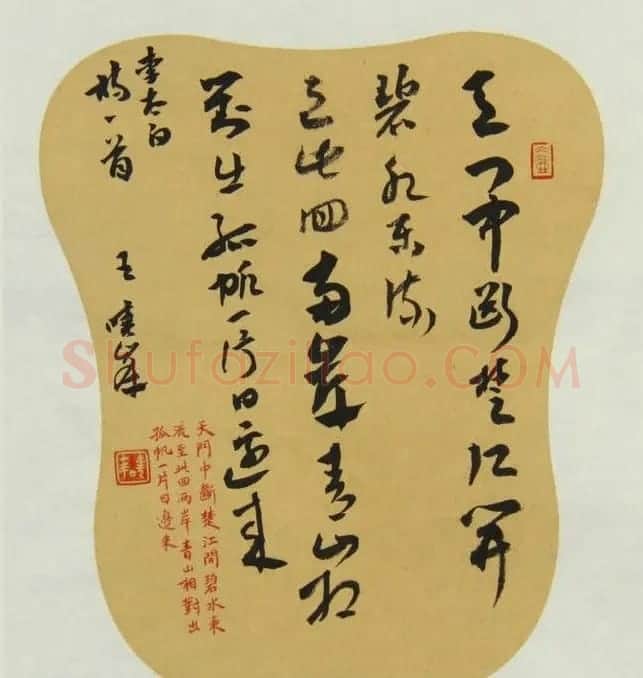 天门中断楚江开
碧水东流
至此回两岸青山相
对出孤帆一片日边来
李太白
诗一首
王晓峰
天门中斷楚江開碧水東
流至此回两岸青山相對出
孤帆一片日邊来
Shufaziliao.COM